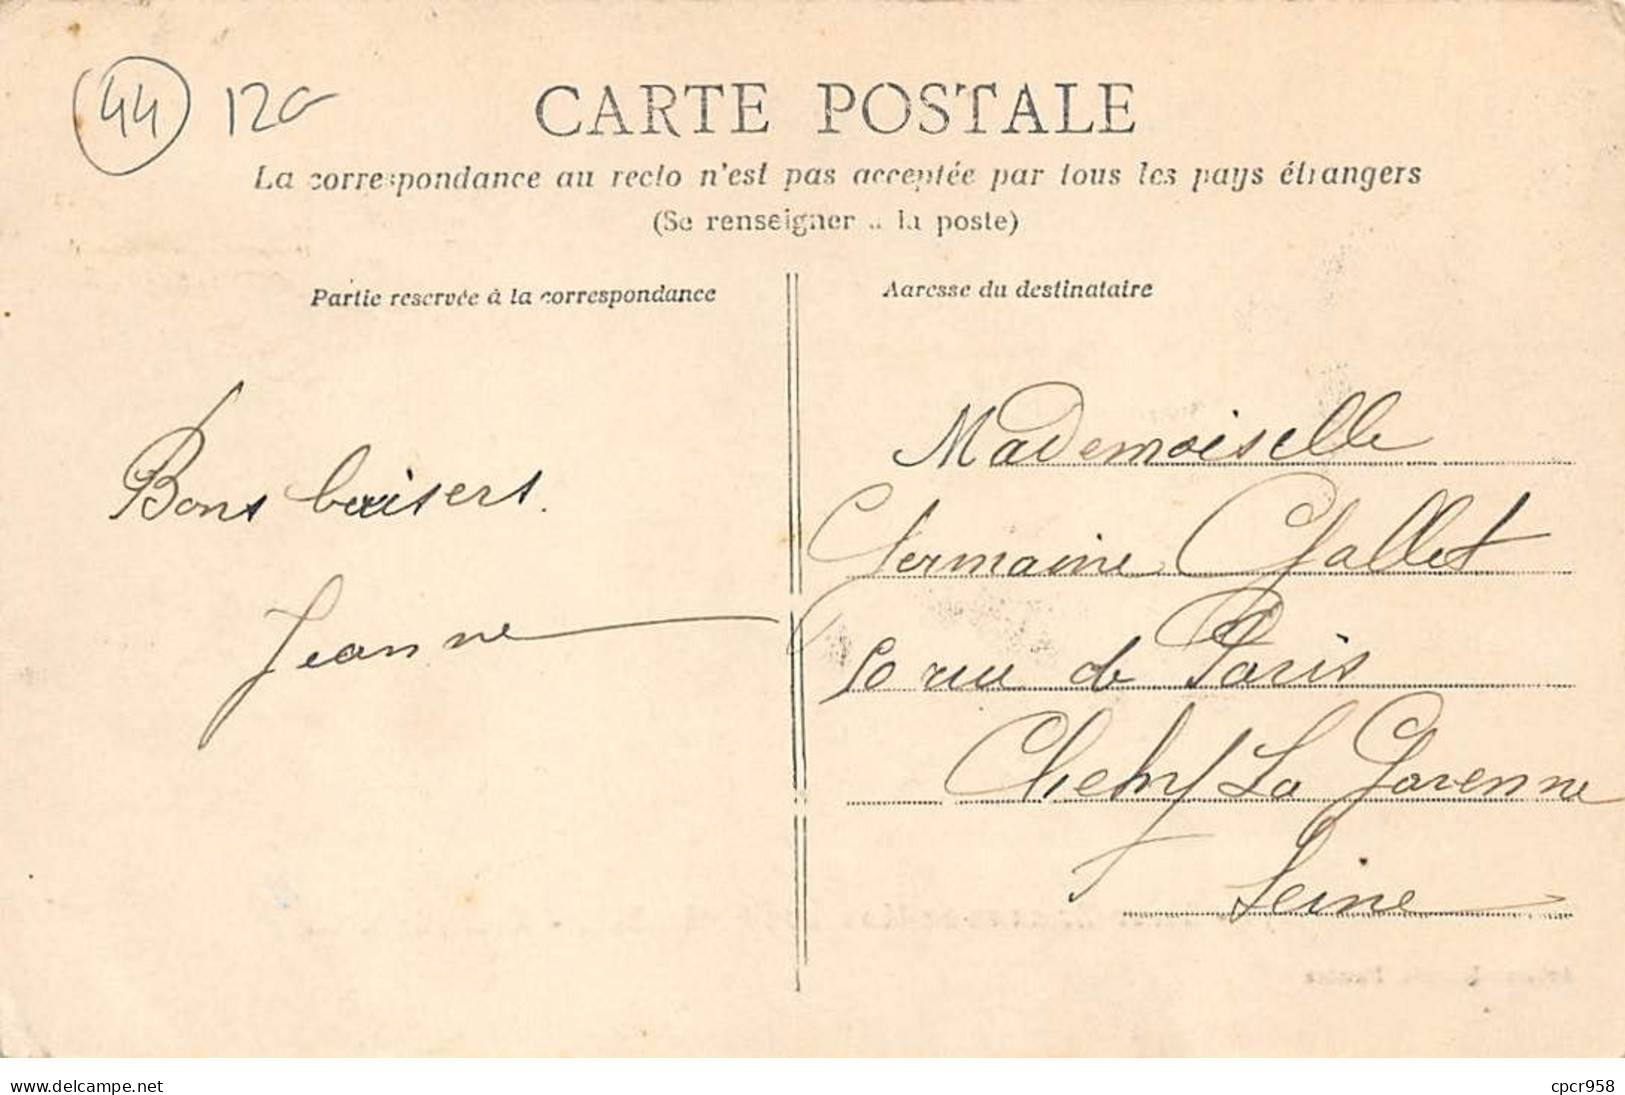 44 12
CARTE POSTALE
La correspondance au recto n'est pas acceptée par tous les pays étrangers
(Se renseigner à la poste)
Partie reservée à la correspondance
Adresse du destinataire
Bons baisers.
Jeanne
Mademoiselle
Germaine Gallet
rue de Paris
La Garenne
Seine
www.delcampe.net
cpcr958